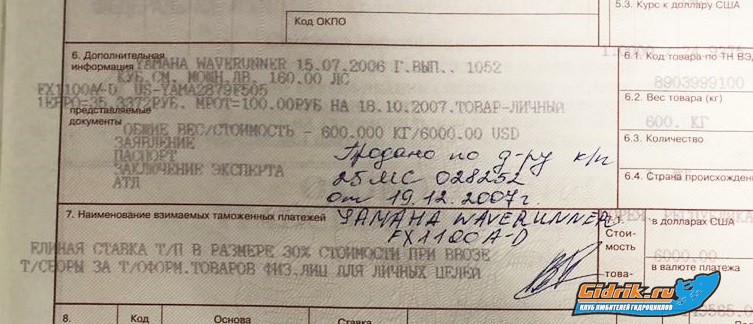 5.3. Курс к доллару США
Код ОКПО
6. Дополнительная
информация
YAMAHA WAVERUNNER 15.07.2006 Г.ВЫП.. 1052
КУБ.СМ. МОЩН.ДВ. 160.00 ЛС
FX1100A-D US-YAMA2879F505
1ЕВРО=35.3372РУБ. МРОТ=100.00РУБ НА 18.10.2007.ТОВАР-ЛИЧНЫЙ
представляемые
документы
ОБЩИЕ ВЕС/СТОИМОСТЬ - 600.000 КГ/6000.00 USD
ЗАЯВЛЕНИЕ
ПАСПОРТ
ЗАКЛЮЧЕНИЕ ЭКСПЕРТА
АТД
Продано по д-ру к/п
25МС 028252
от 19.12.2007г.
YAMAHA WAVERUNNER
FX1100A-D
6.1. Код товара по ТН ВЭД
8903999100
6.2. Вес товара (кг)
600. КГ
6.3. Количество
6.4. Страна происхожден
7. Наименование взимаемых таможенных платежей
ЕДИНАЯ СТАВКА Т/П В РАЗМЕРЕ 30% СТОИМОСТИ ПРИ ВВОЗЕ
Т/СБОРЫ ЗА Т/ОФОРМ.ТОВАРОВ ФИЗ.ЛИЦ ДЛЯ ЛИЧНЫХ ЦЕЛЕЙ
Стои-
мость
това-
в долларах США
6000.00
в валюте платежа
8.
Код
Основа
Ставка
Gidrik.ru
КЛУБ ЛЮБИТЕЛЕЙ ГИДРОЦИКЛОВ